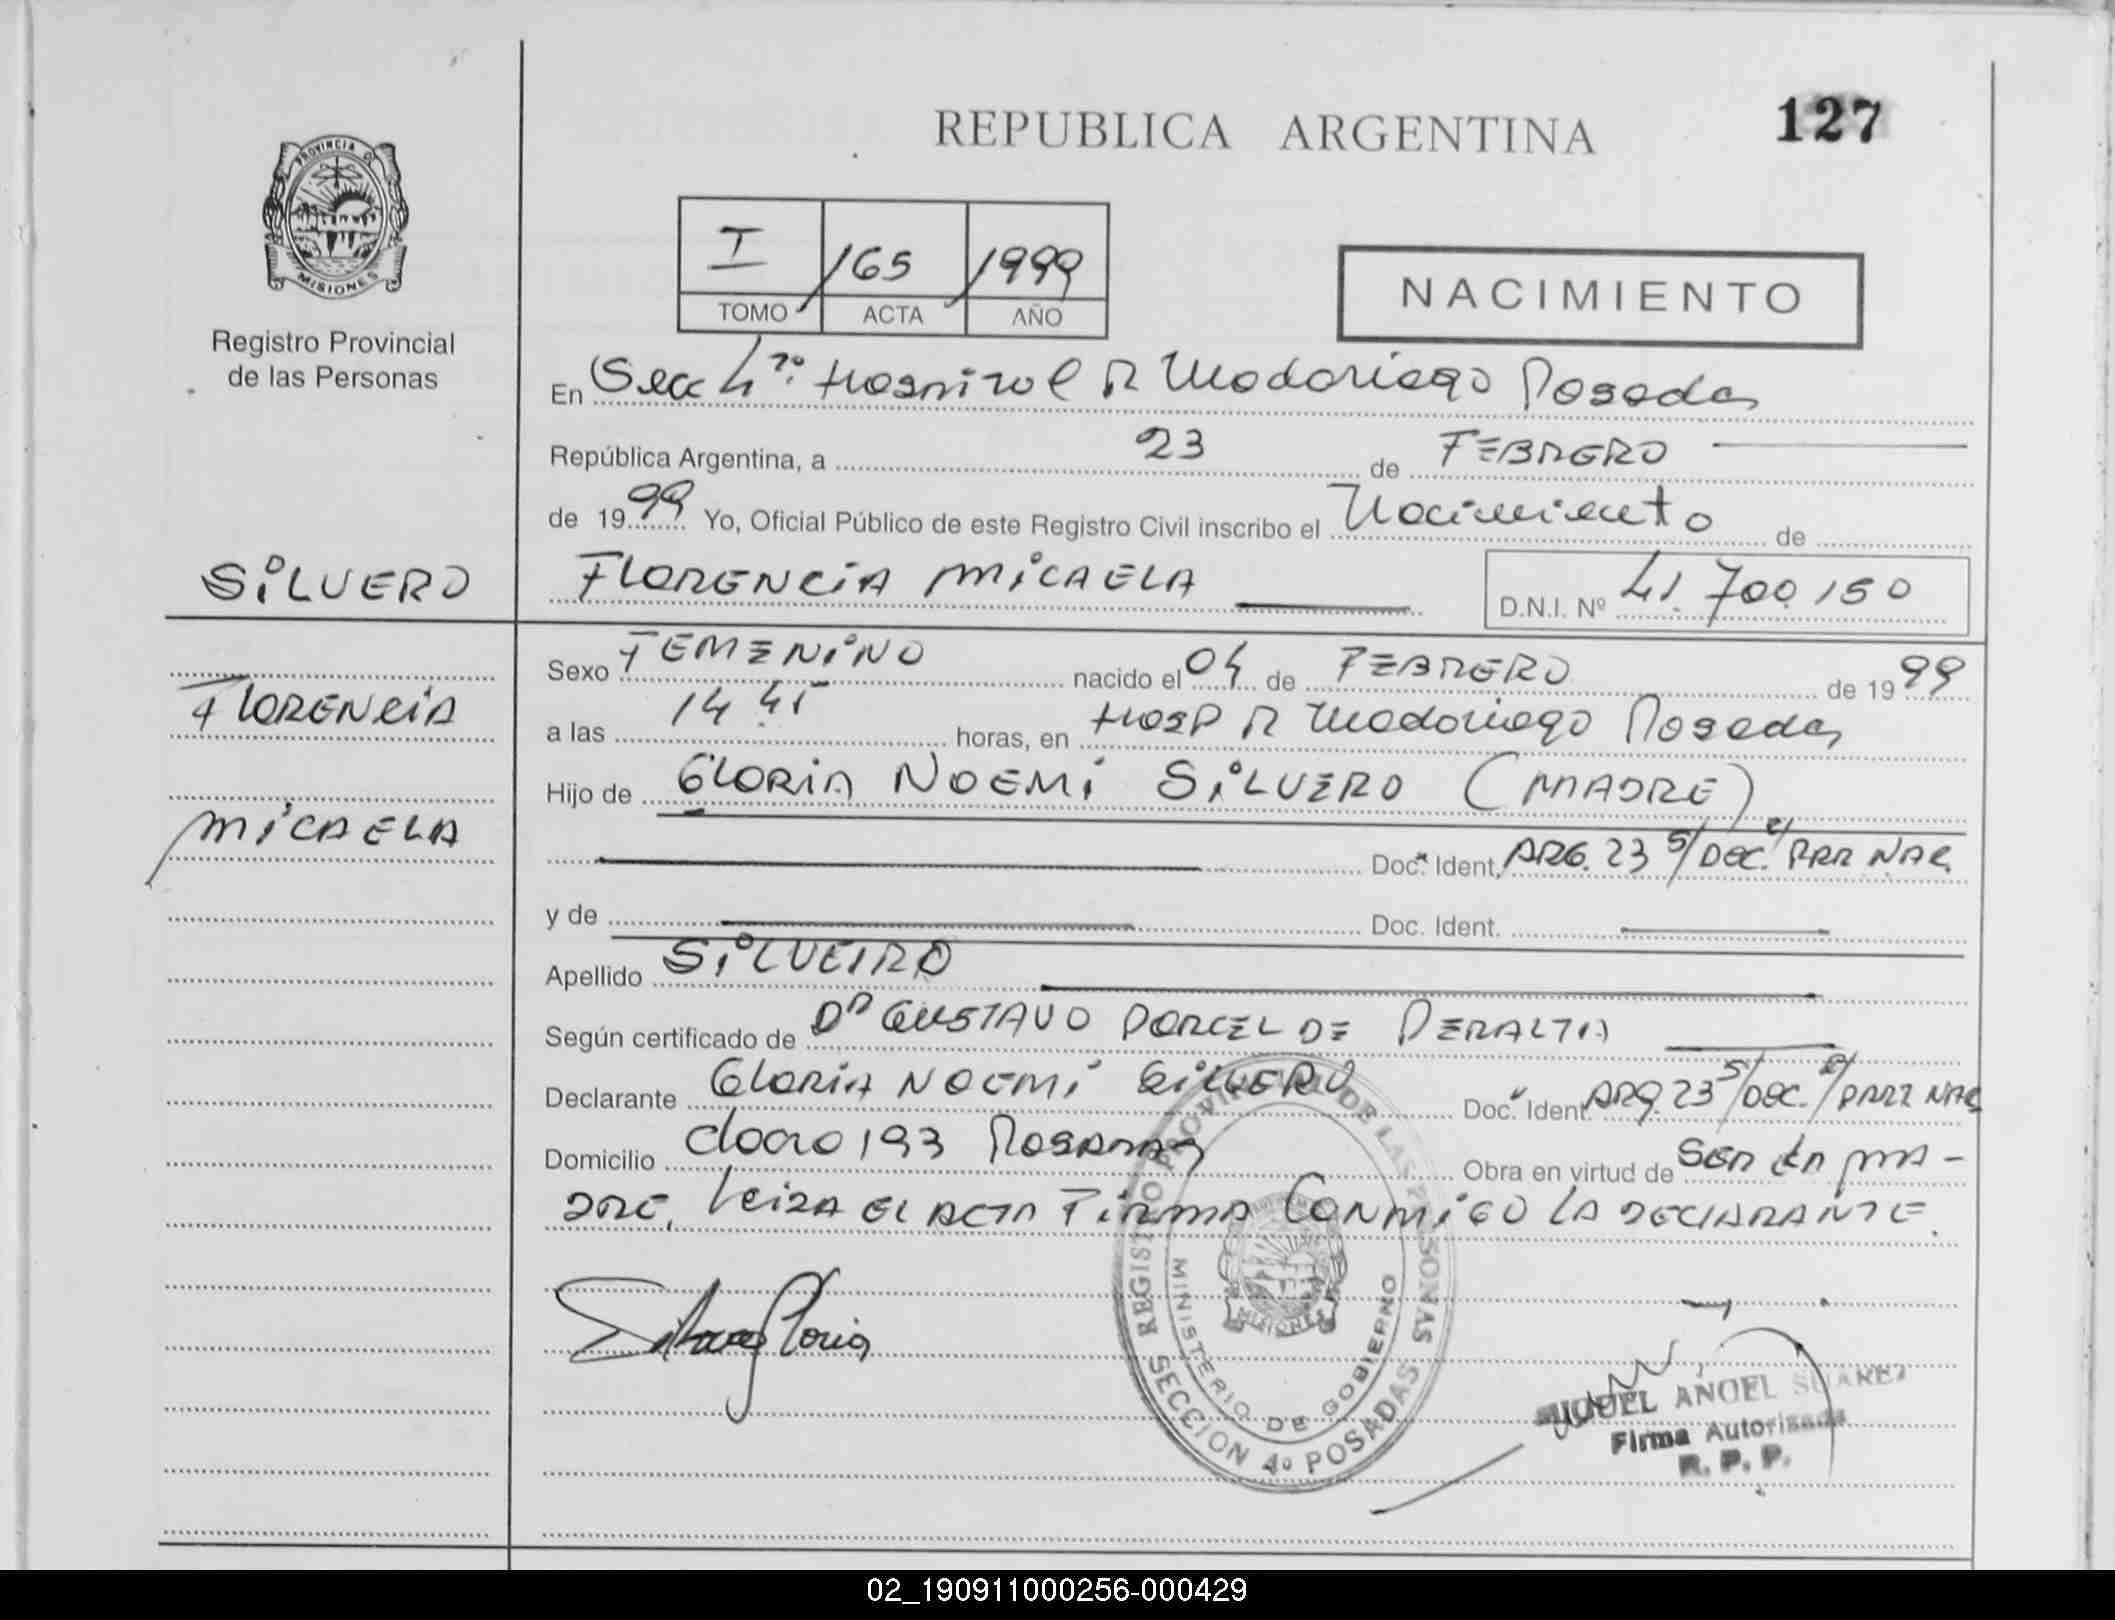 REPUBLICA ARGENTINA
127
PROVINCIA DE
MISIONES
Registro Provincial
de las Personas
I /165 /1999
TOMO ACTA AÑO
NACIMIENTO
En Secc 4ta. Hospital R Madariaga Posadas
República Argentina, a 23 de FEBRERO
de 1999 Yo, Oficial Público de este Registro Civil inscribo el Nacimiento de
SILVERO
FLORENCIA MICAELA
D.N.I. Nº 41.700.150
FLORENCIA
MICAELA
Sexo FEMENINO nacido el 04 de FEBRERO de 1999
a las 14 45 horas, en Hosp R Madariaga Posadas
Hijo de GLORIA NOEMI SILVERO (MADRE)
Doc. Ident. ARG. 23 s/DEC. P/PAR NAC
y de Doc. Ident.
Apellido SILVEIRO
Según certificado de Dr GUSTAVO PORCEL DE PERALTA
Declarante GLORIA NOEMI SILVERO Doc. Ident. ARG. 23 s/DEC. P/PAR NAC
Domicilio 193 POSADAS Obra en virtud de SER LA MA-
DRE, Leida EL ACTA FIRMA CONMIGO LA DECLARANTE.
Silvero Gloria
REGISTRO PROVINCIAL DE LAS PERSONAS
MINISTERIO DE GOBIERNO
MISIONES
SECCION 4º POSADAS
MIGUEL ANGEL SUAREZ
Firma Autorizada
R. P. P.
02_190911000256-000429